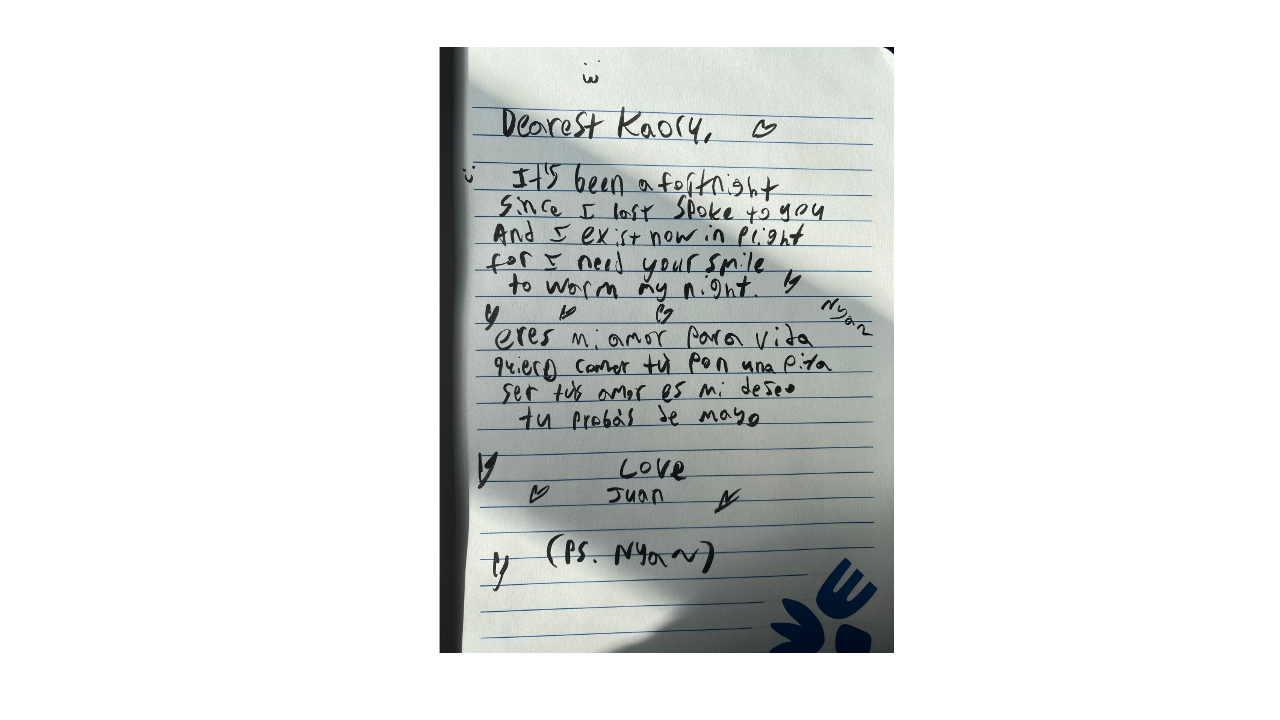 Dearest Kaory,
It's been a fortnight
since I last spoke to you
And I exist now in plight
for I need your smile
to warm my night.
Nyan
eres mi amor para vida
quiero comer tú pon una pita
ser tús amor es mi deseo
tu probás de mayo
Love
Juan
(PS. Nyan)